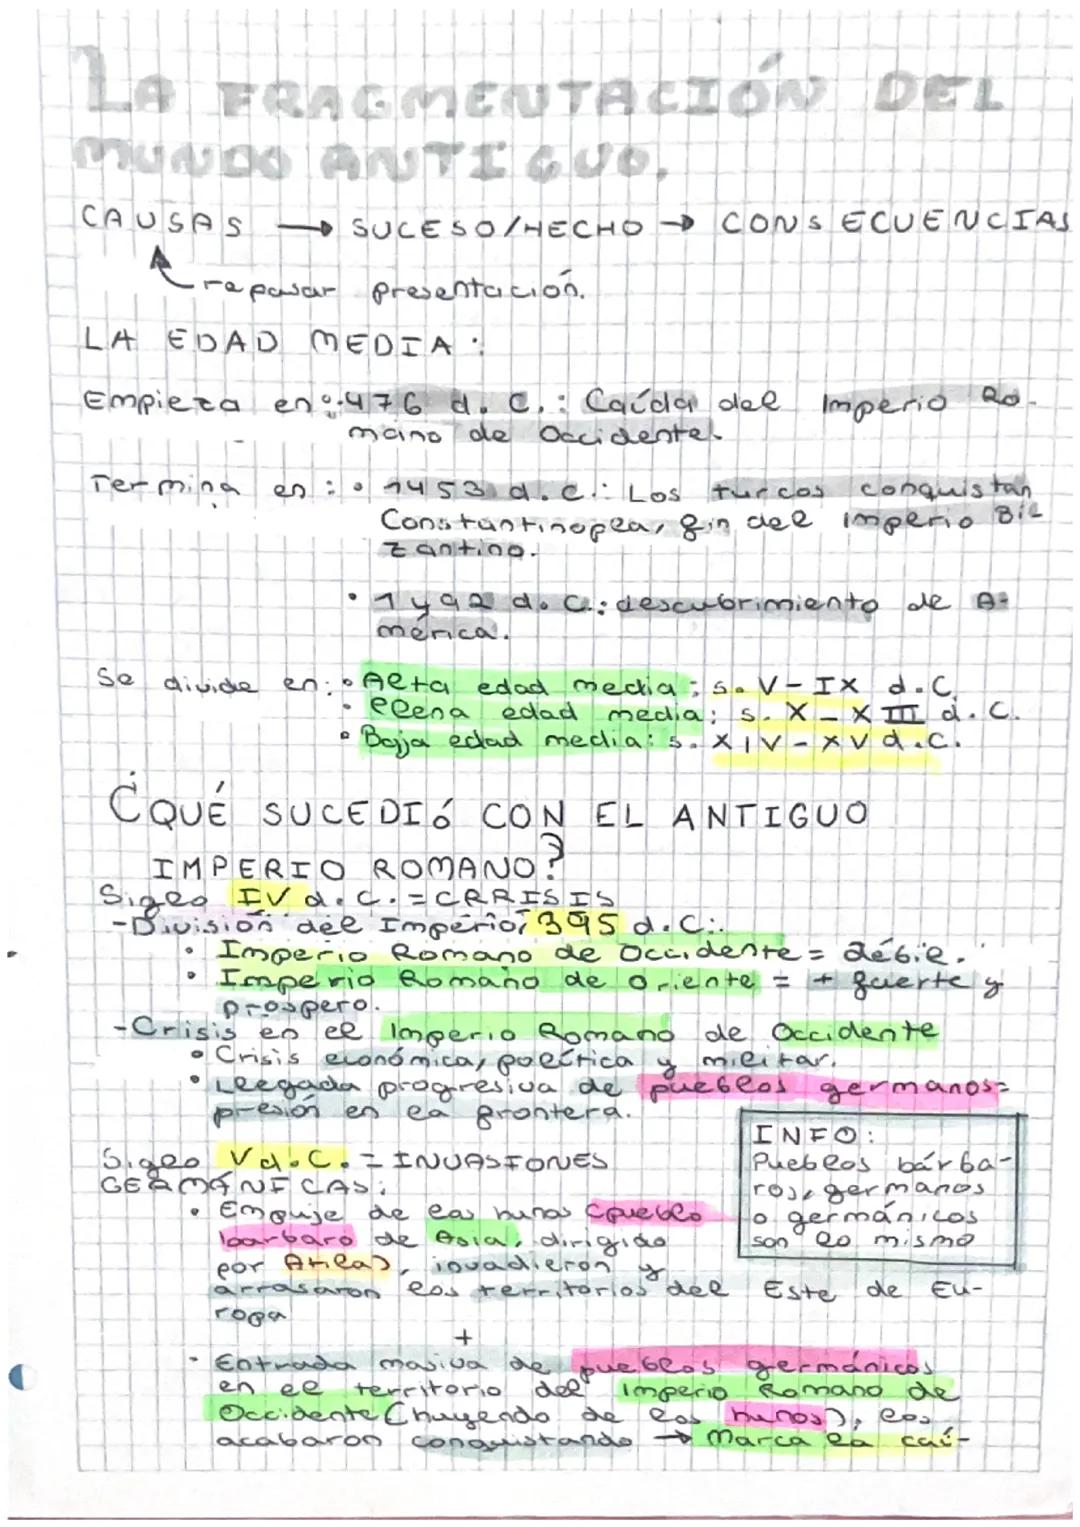 LA FRAGMENTACIÓN DEL
MUNDO ANTIGUO.
CAUSAS → SUCESO/HECHO → CONSECUENCIAS
repasar presentación.
LA EDAD MEDIA:
Empieza en: 476 d. C.: Caída del Imperio Ro-
mano de Occidente.
Termina en: • 1453 d.C.: Los turcos conquistan
Constantinopla, fin del imperio Bi-
zantino.
• 1492 d.C.: descubrimiento de A-
mérica.
Se divide en: • Alta edad media: s. V-IX d.C.
• Plena edad media: s. X-XIII d.C.
• Baja edad media: s. XIV-XV d.C.
¿QUÉ SUCEDIÓ CON EL ANTIGUO
IMPERIO ROMANO?
Siglo IV d.C. = CRRISIS
-División del Imperio, 395 d.C.:
• Imperio Romano de Occidente = débil.
• Imperio Romano de Oriente = + fuerte y
prospero.
-Crisis en el Imperio Romano de Occidente
• Crisis económica, política y militar.
• Llegada progresiva de pueblos germanos=
presión en la frontera.
INFO:
Pueblos bárba-
ros, germanos
o germánicos
son lo mismo
Siglo V d.C. = INVASIONES
GERMÁNICAS:
• Empuje de las hunos (pueblo
barbaro de Asia, dirigido
por Atila), invadieron y
arrasaron los territorios del Este de Eu-
ropa
+
• Entrada masiva de pueblos germánicos
en el territorio del Imperio Romano de
Occidente (huyendo de los hunos), los
acabaron conquistando → Marca la caí-